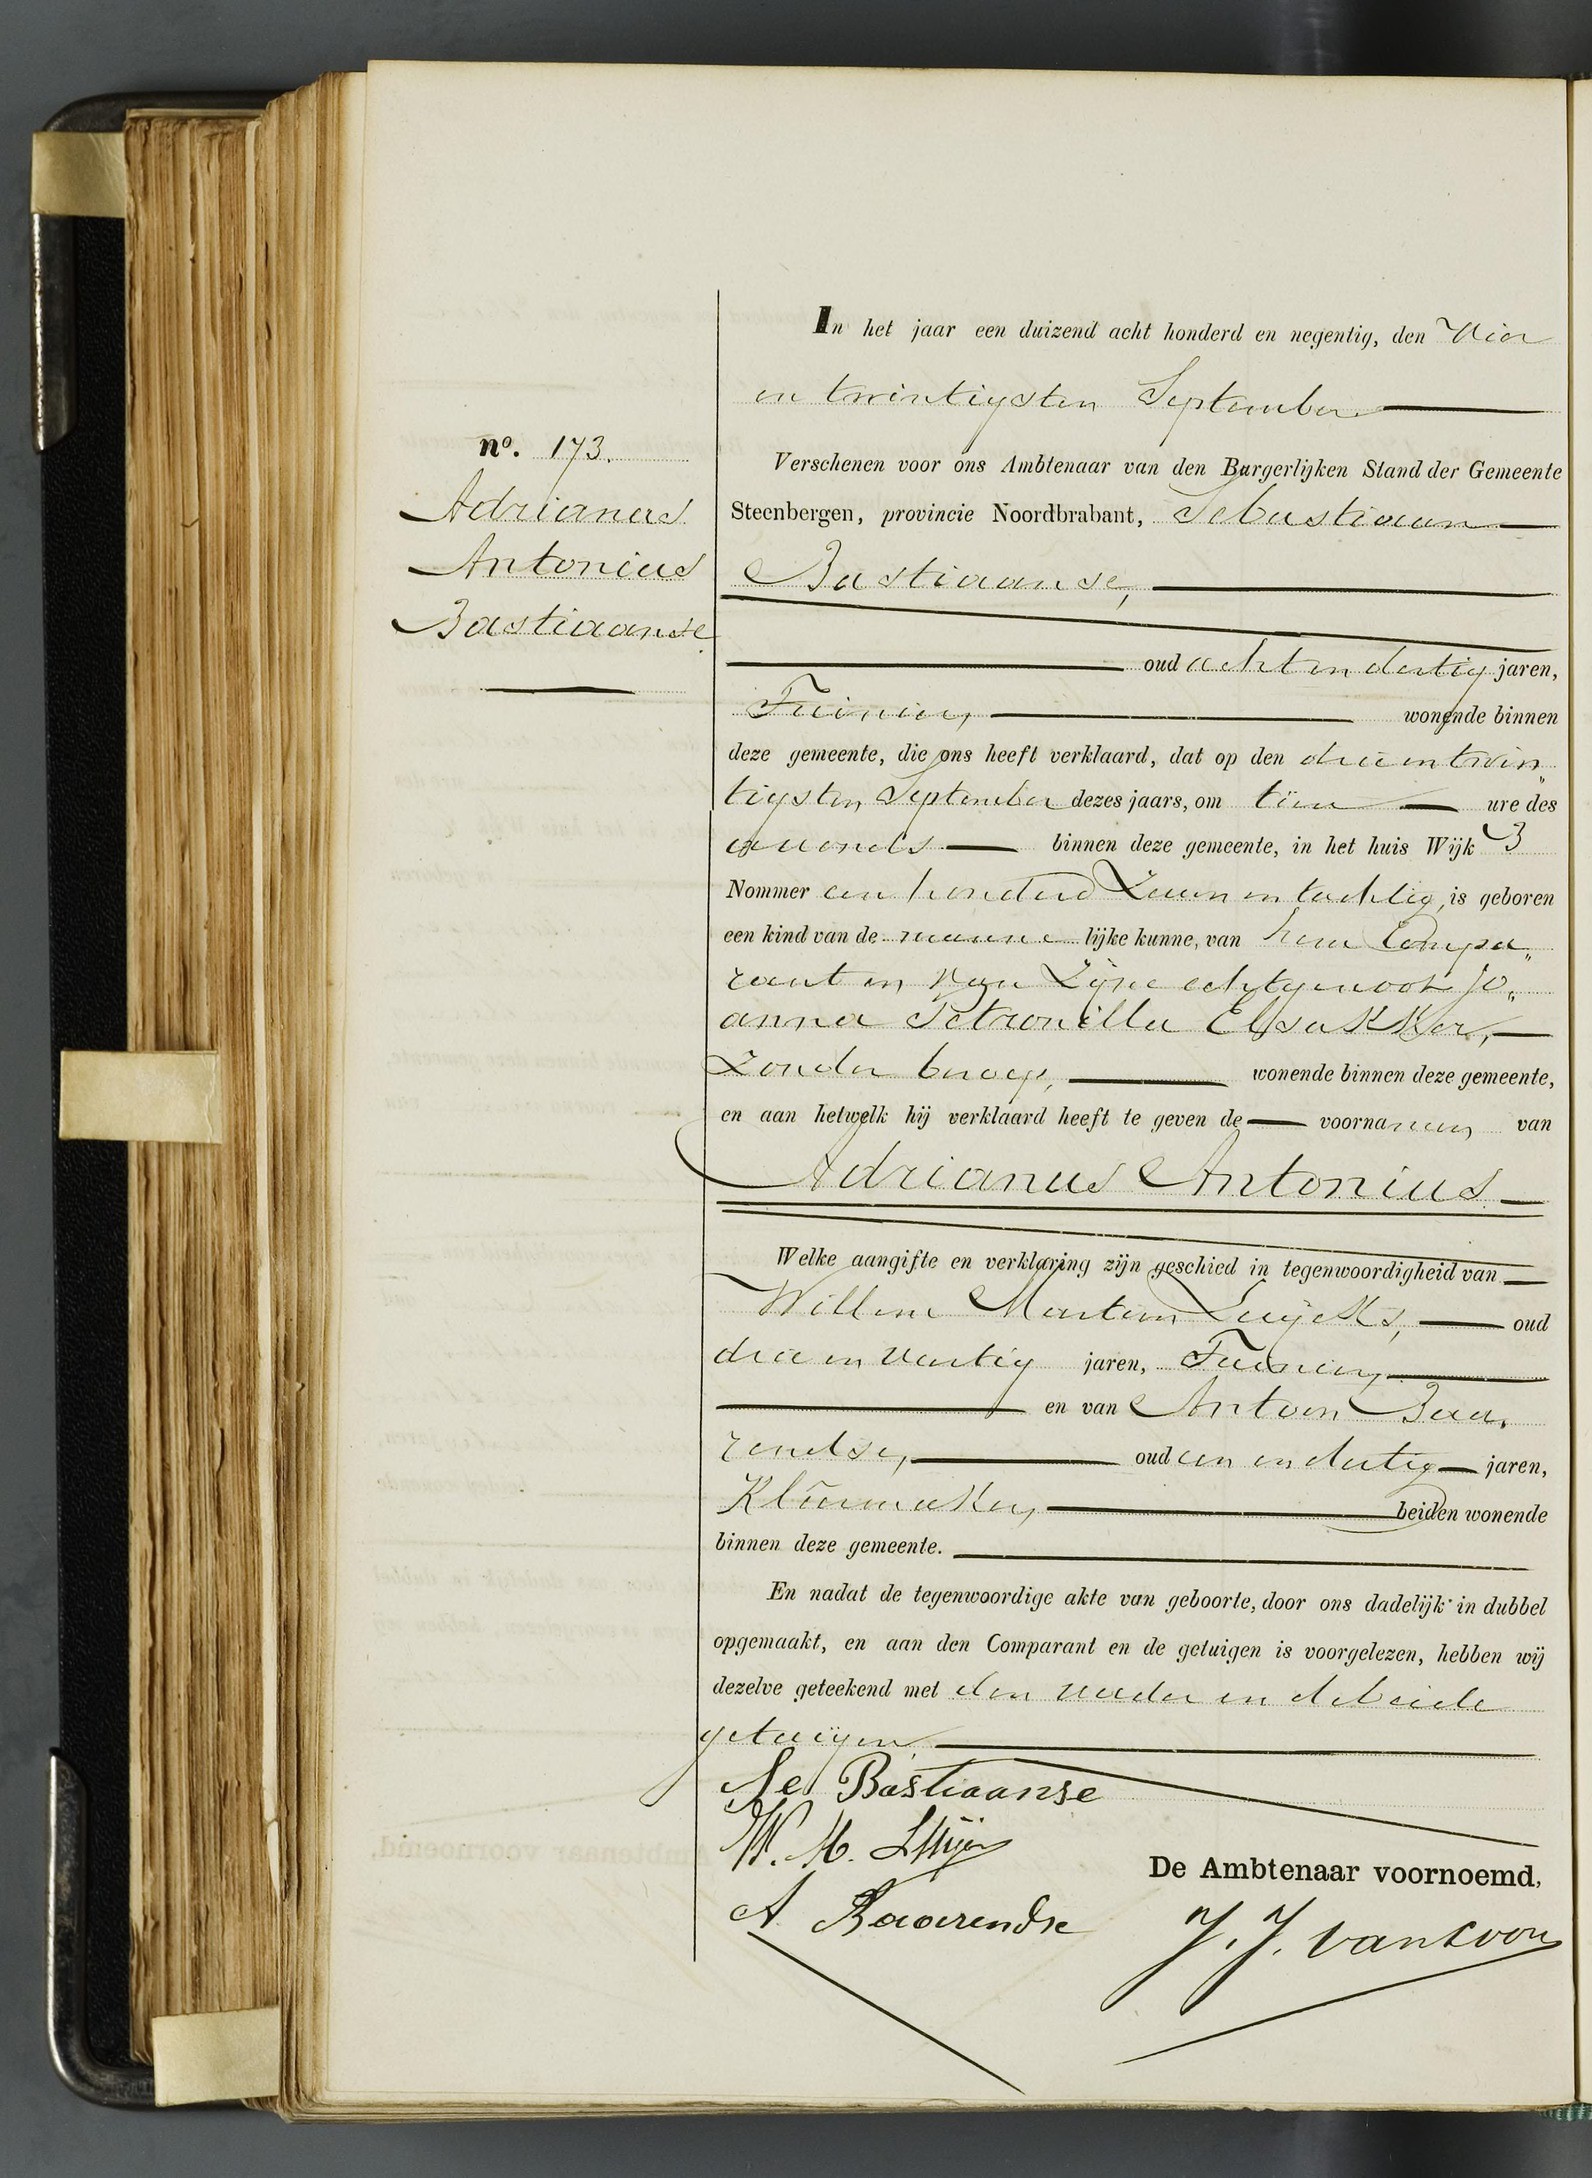 In het jaar een duizend acht honderd en negentig, den vier
en twintigsten September
Verschenen voor ons Ambtenaar van den Burgerlijken Stand der Gemeente
Steenbergen, provincie Noordbrabant, Sebastiaan
Bastiaanse,
oud acht en dertig jaren,
Tuinier, wonende binnen
deze gemeente, die ons heeft verklaard, dat op den drie en twin„
tigsten September dezes jaars, om tien ure des
avonds binnen deze gemeente, in het huis Wijk B
Nommer een honderd Zeven en tachtig, is geboren
een kind van de manne lijke kunne, van hem Compa„
rant en van Zijne echtgenoot Jo„
anna Petronilla Elsakker,
Zonder beroep, wonende binnen deze gemeente,
en aan hetwelk hij verklaard heeft te geven de voornamen van
Adrianus Antonius
Welke aangifte en verklaring zijn geschied in tegenwoordigheid van
Willem Marten oud
drie en veertig jaren, Tuinier,
en van Antoon Baa„
rendse, oud een en dertig jaren,
Kleermaker, beiden wonende
binnen deze gemeente.
En nadat de tegenwoordige akte van geboorte, door ons dadelijk in dubbel
opgemaakt, en aan den Comparant en de getuigen is voorgelezen, hebben wij
dezelve geteekend met den vader en de beide
getuigen
Se Bastiaanse
W. M.
A Baarendse
De Ambtenaar voornoemd,
J. J. van Loon
no. 173.
Adrianus
Antonius
Bastiaanse.